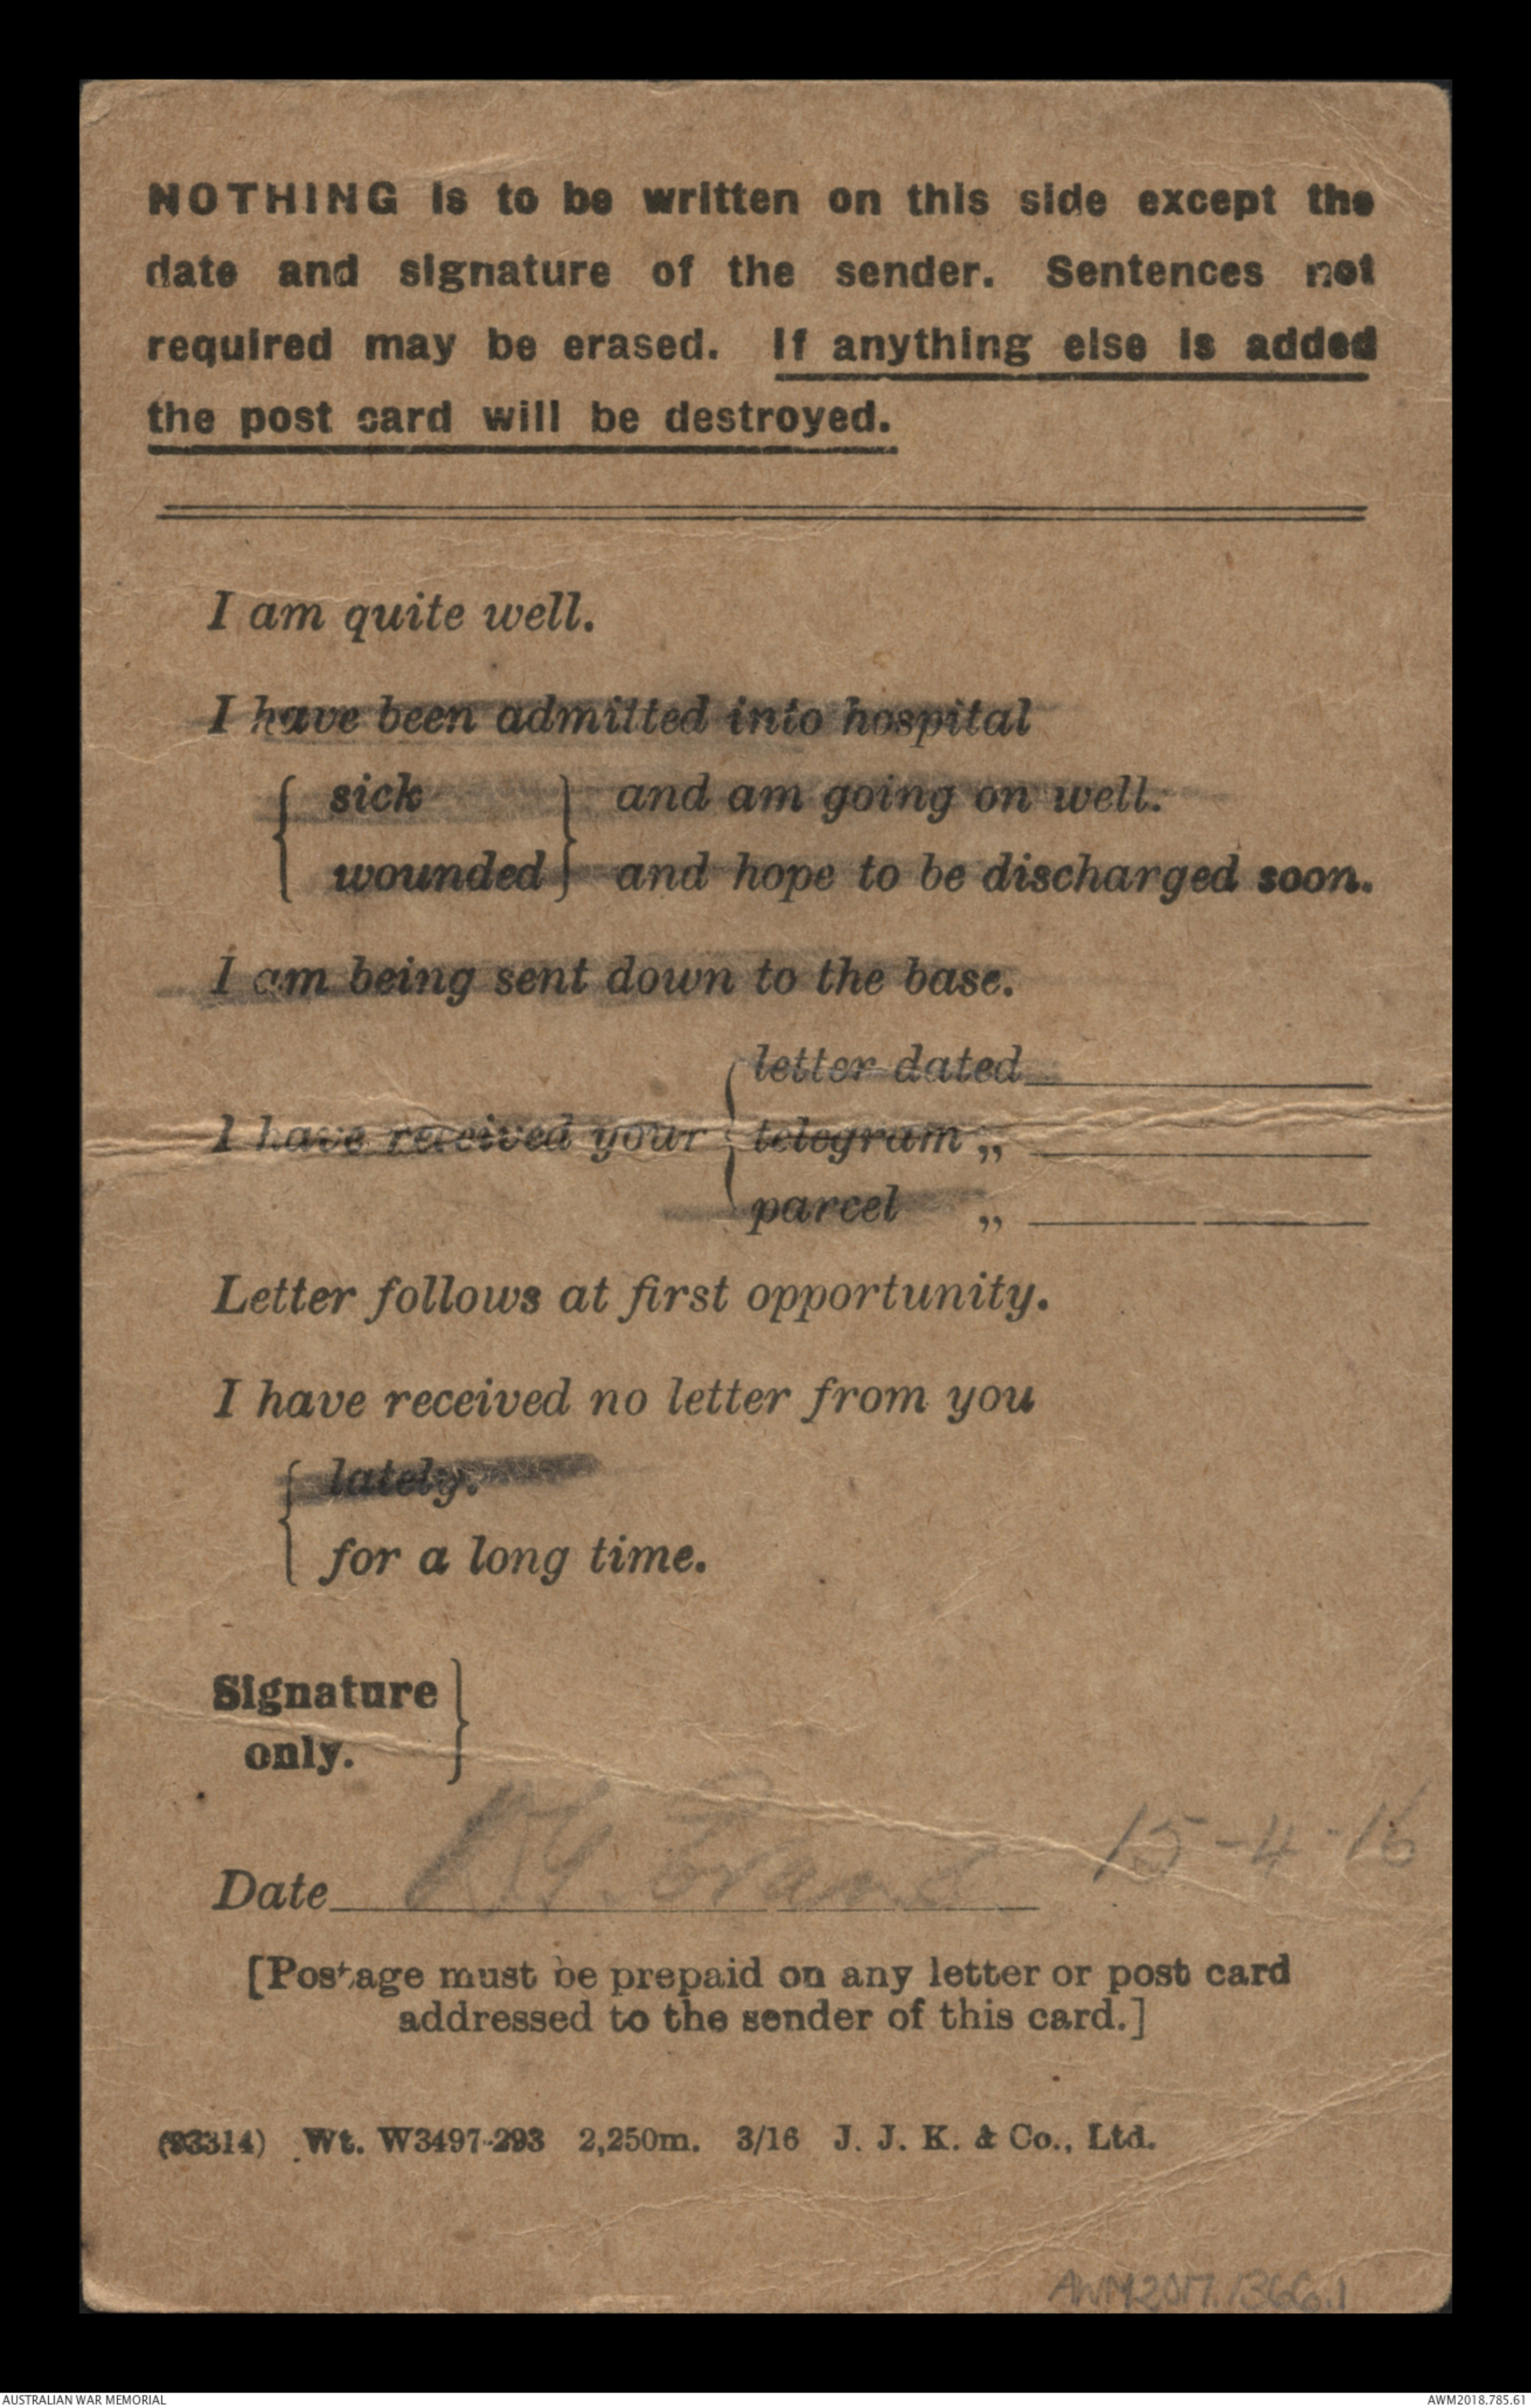 NOTHING is to be written on this side except the
date and signature of the sender. Sentences not
required may be erased. If anything else is added
the post card will be destroyed.
I am quite well.
I have been admitted into hospital
sick and am going on well.
wounded and hope to be discharged soon.
I am being sent down to the base.
letter dated
I have received your telegram „
parcel „
Letter follows at first opportunity.
I have received no letter from you
lately.
for a long time.
Signature
only.
15-4-16
Date
[Postage must be prepaid on any letter or post card
addressed to the sender of this card.]
(93314) Wt. W3497-293 2,250m. 3/16 J. J. K. & Co., Ltd.
AWM2017.1366.1
AUSTRALIAN WAR MEMORIAL AWM2018.785.61